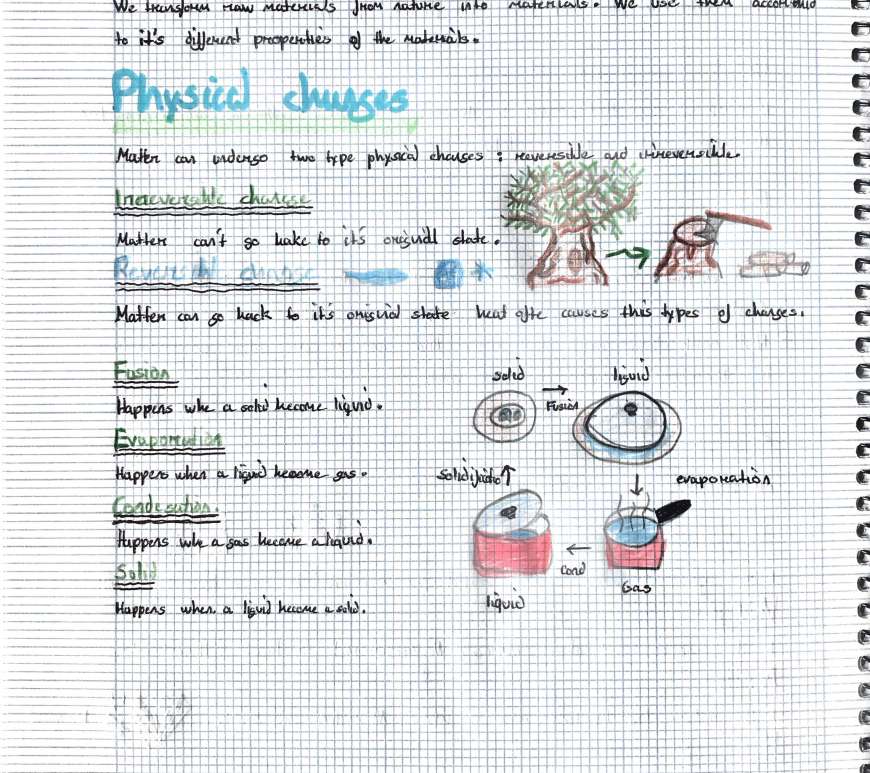 We transform raw materials from nature into materials. We use them according
to it's different properties of the materials.
Physical changes
Matter can undergo two type physical changes : reversible and irreversible.
Irreversable change
Matter can't go bake to it's originall state.
Reversibl change
Matter can go back to it's original state heat ofte causes this types of changes.
Fusion
Happens whe a solid become liquid.
Evaporation
Happens when a liquid become gas.
Condesation.
Happens whe a gas become a liquid.
Solid
Happens when a liquid become a solid.
solid
liquid
Fusion
evaporation
Gas
Cond
liquid